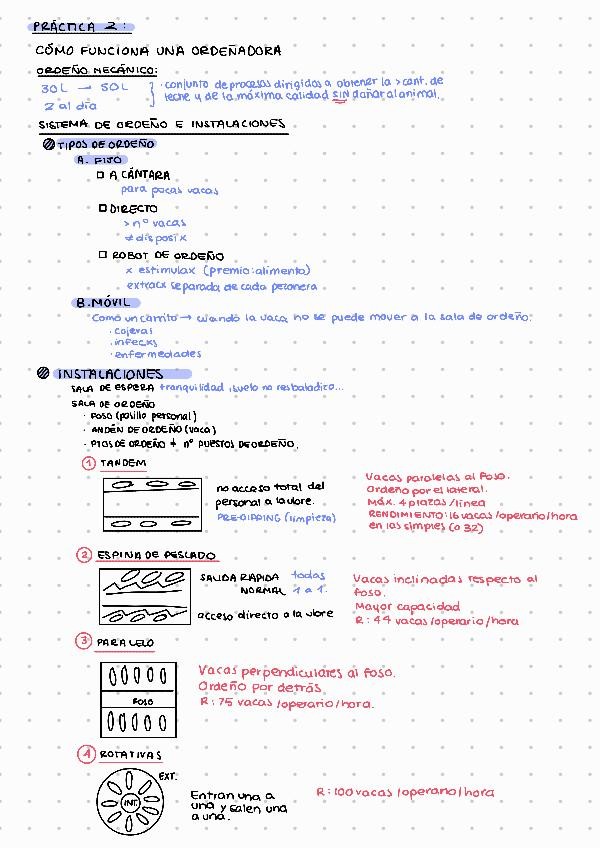 PRÁCTICA 2:
CÓMO FUNCIONA UNA ORDEÑADORA
ORDEÑO MECÁNICO:
30L → 50L
2 al día
conjunto de procesos dirigidos a obtener la > cant. de
leche y de la máxima calidad SIN dañar al animal.
SISTEMA DE ORDEÑO E INSTALACIONES
TIPOS DE ORDEÑO
A. FIJO
A CÁNTARA
para pocas vacas
DIRECTO
> nº vacas
≠ disposix
ROBOT DE ORDEÑO
x estimulax (premio: alimento)
extracx separada de cada pezonera
B. MÓVIL
Como un carrito → cuando la vaca no se puede mover a la sala de ordeño:
· cojeras
· infecxs
· enfermedades
INSTALACIONES
SALA DE ESPERA tranquilidad, suelo no resbaladizo...
SALA DE ORDEÑO
· FOSO (pasillo personal)
· ANDÉN DE ORDEÑO (vaca)
· PTOS DE ORDEÑO ≠ nº PUESTOS DE ORDEÑO.
1 TANDEM
no acceso total del
personal a la ubre.
PRE-DIPPING (limpieza)
Vacas paralelas al foso.
Ordeño por el lateral.
Máx. 4 plazas/línea
RENDIMIENTO: 16 vacas/operario/hora
en las simples (o 32)
2 ESPINA DE PESCADO
SALIDA RÁPIDA todas
NORMAL 1 a 1.
acceso directo a la ubre
Vacas inclinadas respecto al
foso.
Mayor capacidad
R: 44 vacas/operario/hora
3 PARALELO
FOSO
Vacas perpendiculares al foso.
Ordeño por detrás.
R: 75 vacas/operario/hora.
4 ROTATIVAS
EXT.
INT.
Entran una a
una y salen una
a una.
R: 100 vacas/operario/hora